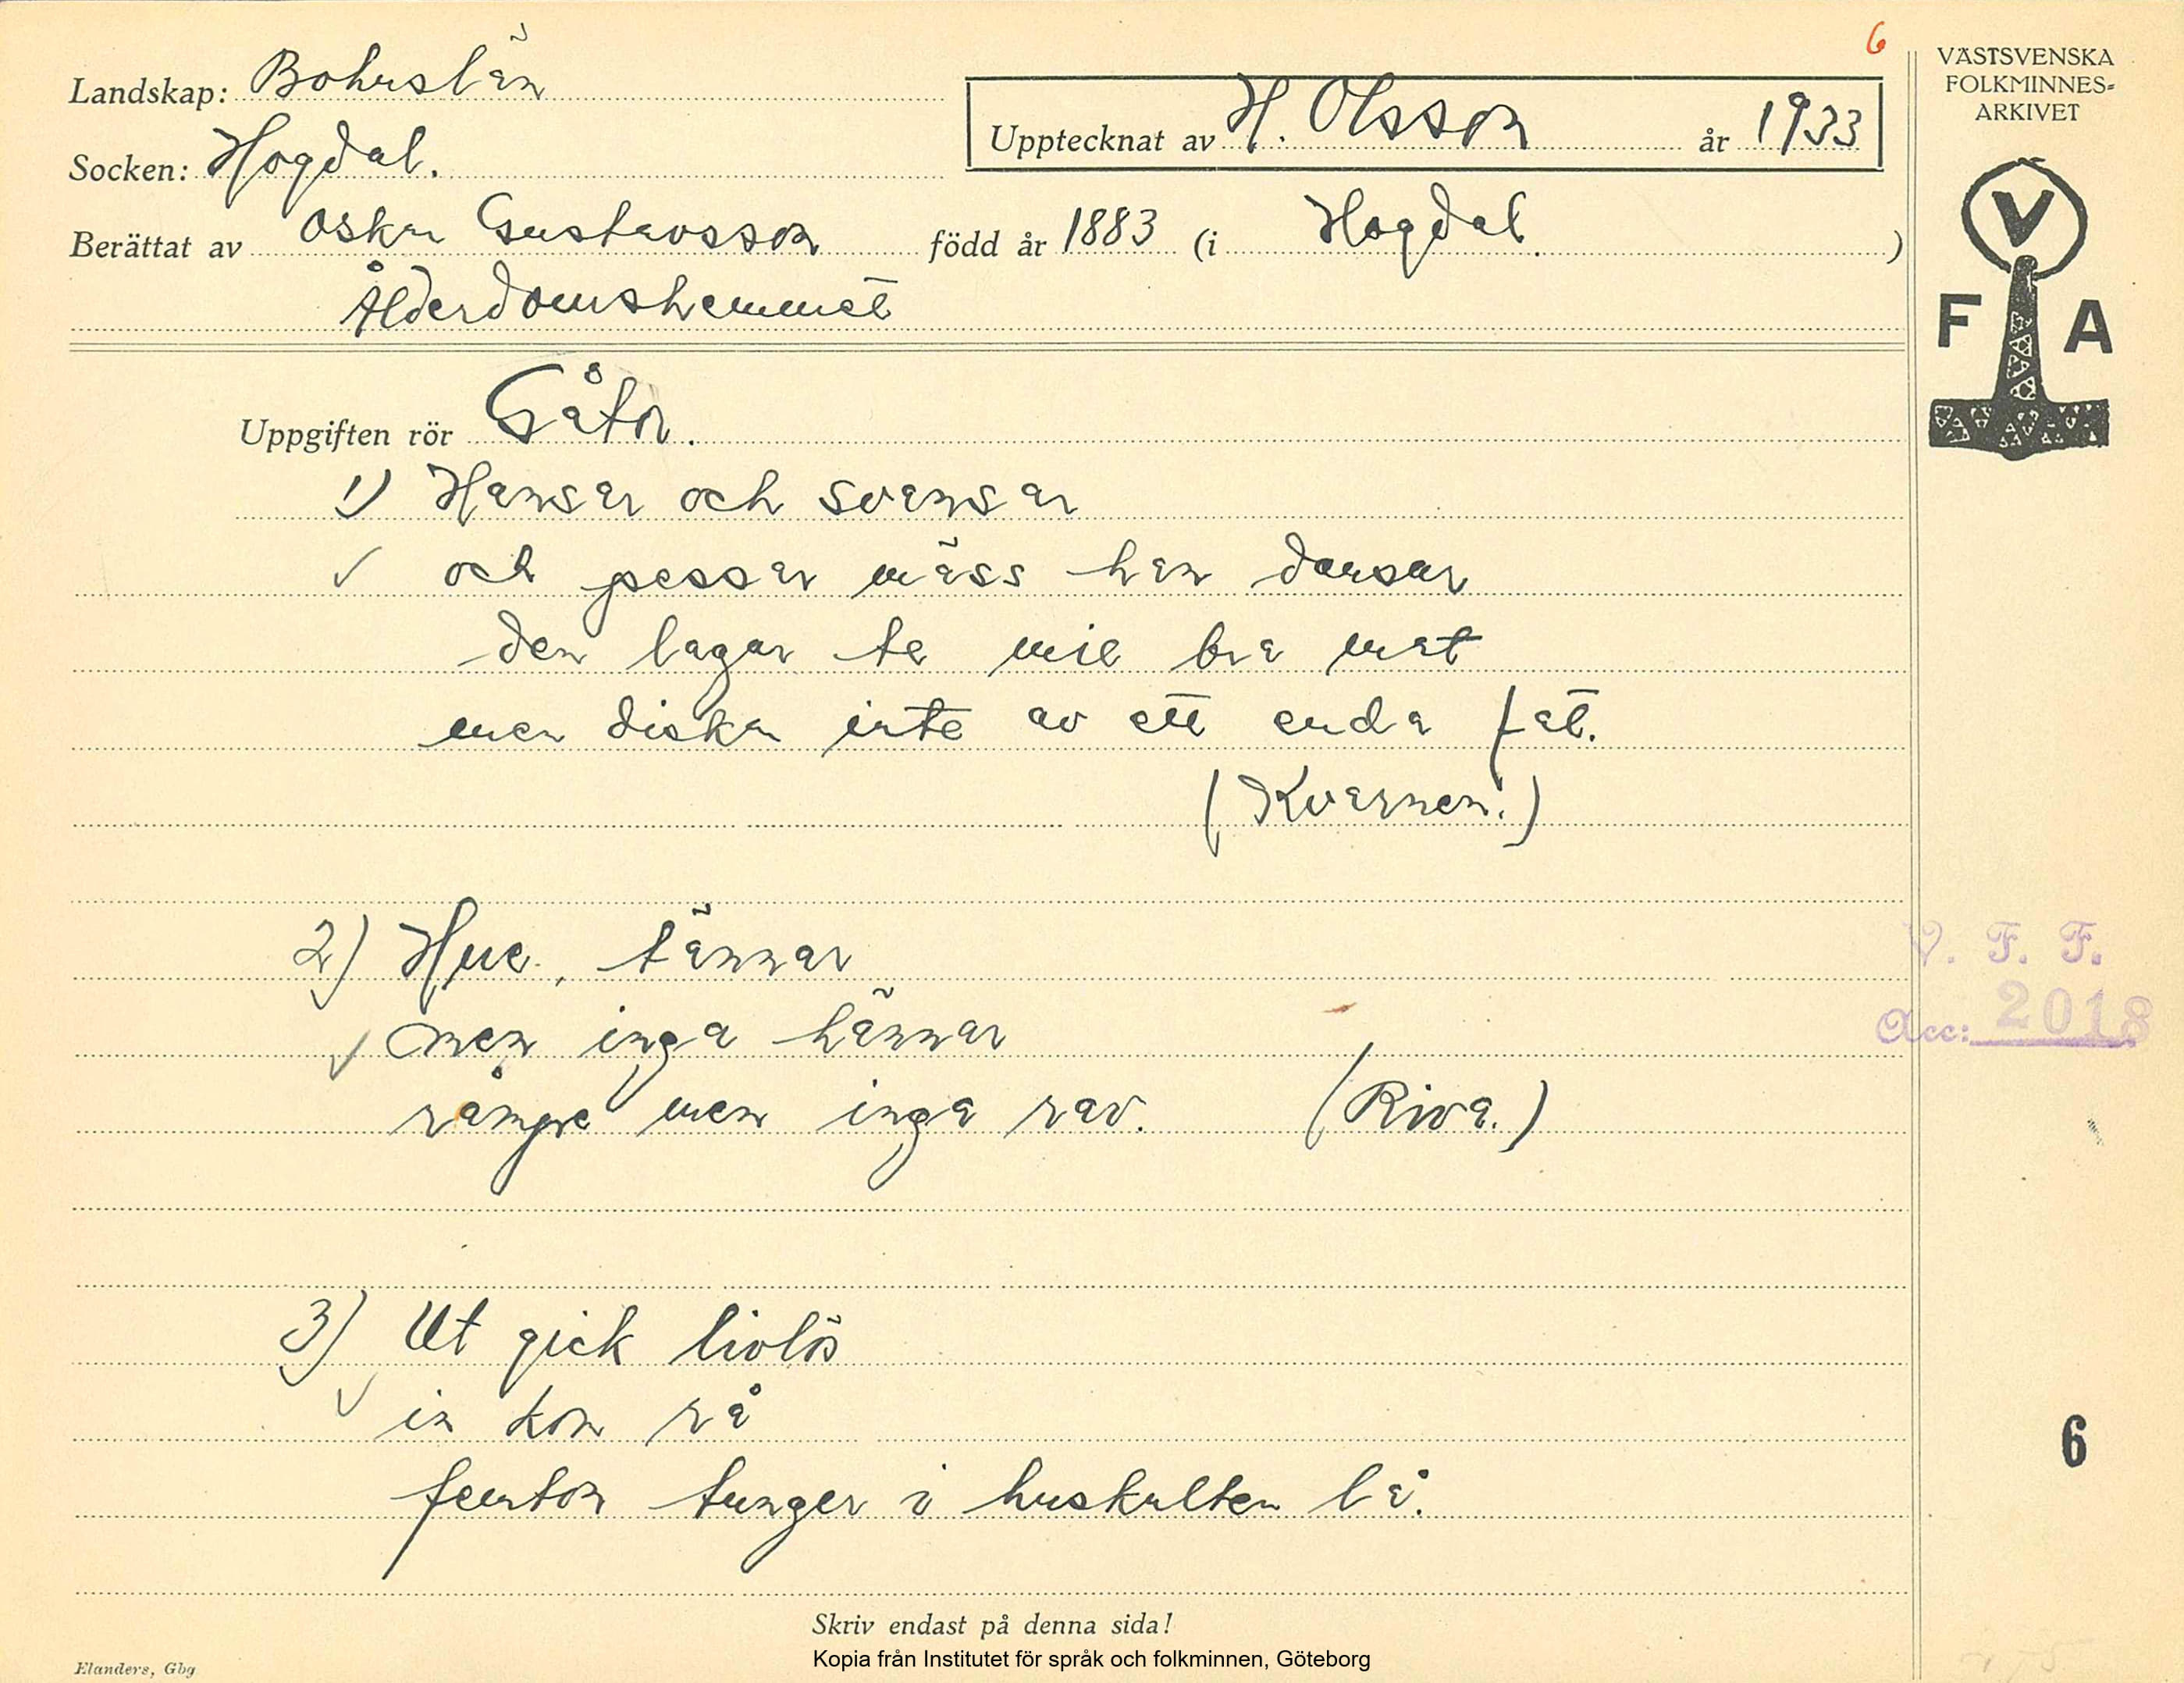 6
VÄSTSVENSKA
FOLKMINNES-
ARKIVET
Landskap: Bohuslän
Upptecknat av H. Olsson år 1933
Socken: Hogdal.
Berättat av Oskar Gustavsson född år 1883 (i Hogdal. )
Ålderdomshemmet
V
F A
Uppgiften rör Gåtor.
1) Hansar och svansar
och passar mäss han dansar
den lagar te mie bra mat
men diskar inte av ett enda fat.
(Kvarnen.)
2) Hue, tännar
men inga hännar
rämpe men inga rav. (Riva.)
V. F. F.
Acc: 2018
3) Ut gick livlös
in kom rå
femton tunger i huskulten lå.
6
Skriv endast på denna sida!
Kopia från Institutet för språk och folkminnen, Göteborg
Elanders, Gbg